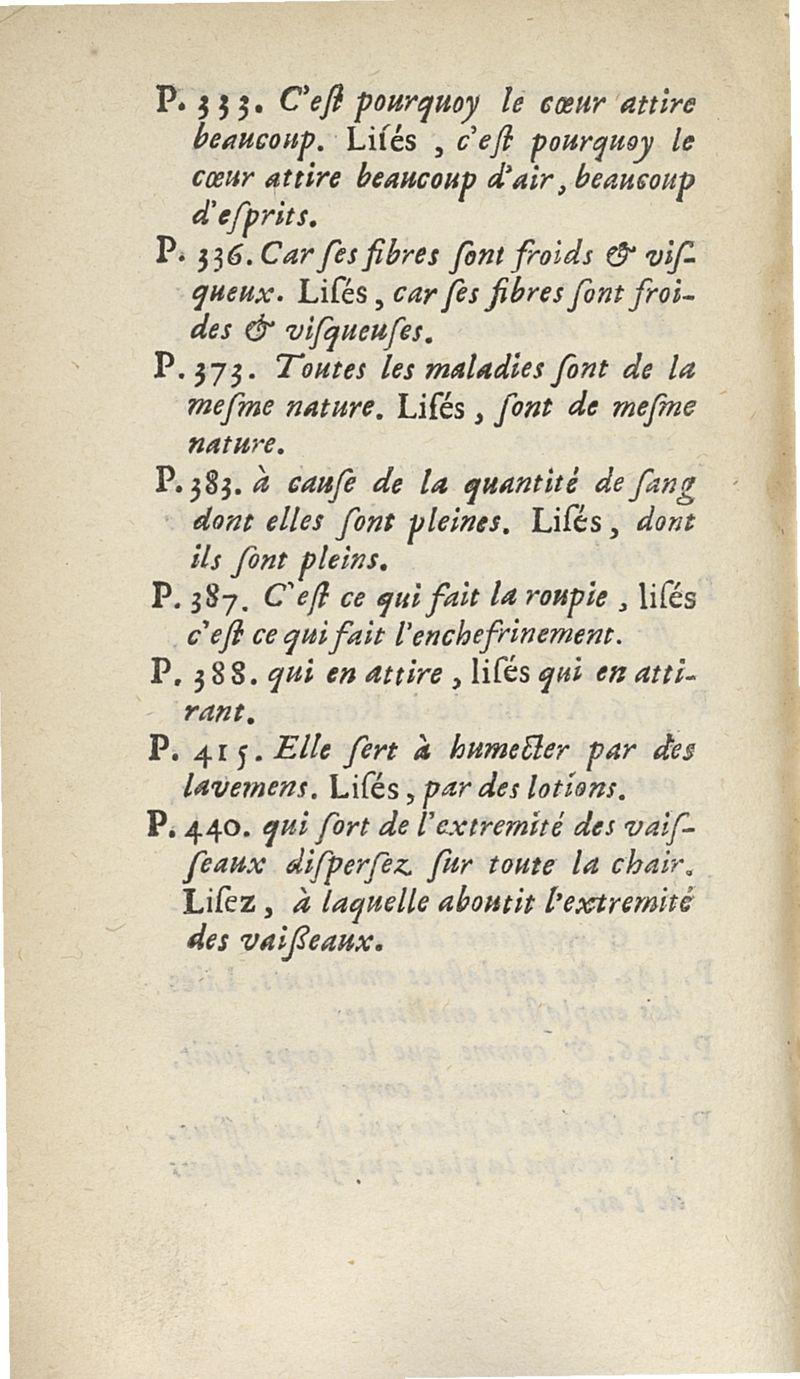 P. 333. C'eſt pourquoy le cœur attire
beaucoup. Liſés , c'eſt pourquoy le
cœur attire beaucoup d'air, beaucoup
d'eſprits.
P. 336. Car ſes fibres ſont froids & viſ-
queux. Liſés, car ſes fibres ſont froi-
des & viſqueuſes.
P. 373. Toutes les maladies ſont de la
meſme nature. Liſés, ſont de meſme
nature.
P. 383. à cauſe de la quantité de ſang
dont elles ſont pleines. Liſés, dont
ils ſont pleins.
P. 387. C'eſt ce qui fait la roupie, liſés
c'eſt ce qui fait l'enchefrinement.
P. 388. qui en attire, liſés qui en atti-
rant.
P. 415. Elle ſert à humecter par des
lavemens. Liſés, par des lotions.
P. 440. qui ſort de l'extremité des vaiſ-
ſeaux diſperſez ſur toute la chair.
Liſez, à laquelle aboutit l'extremité
des vaißeaux.